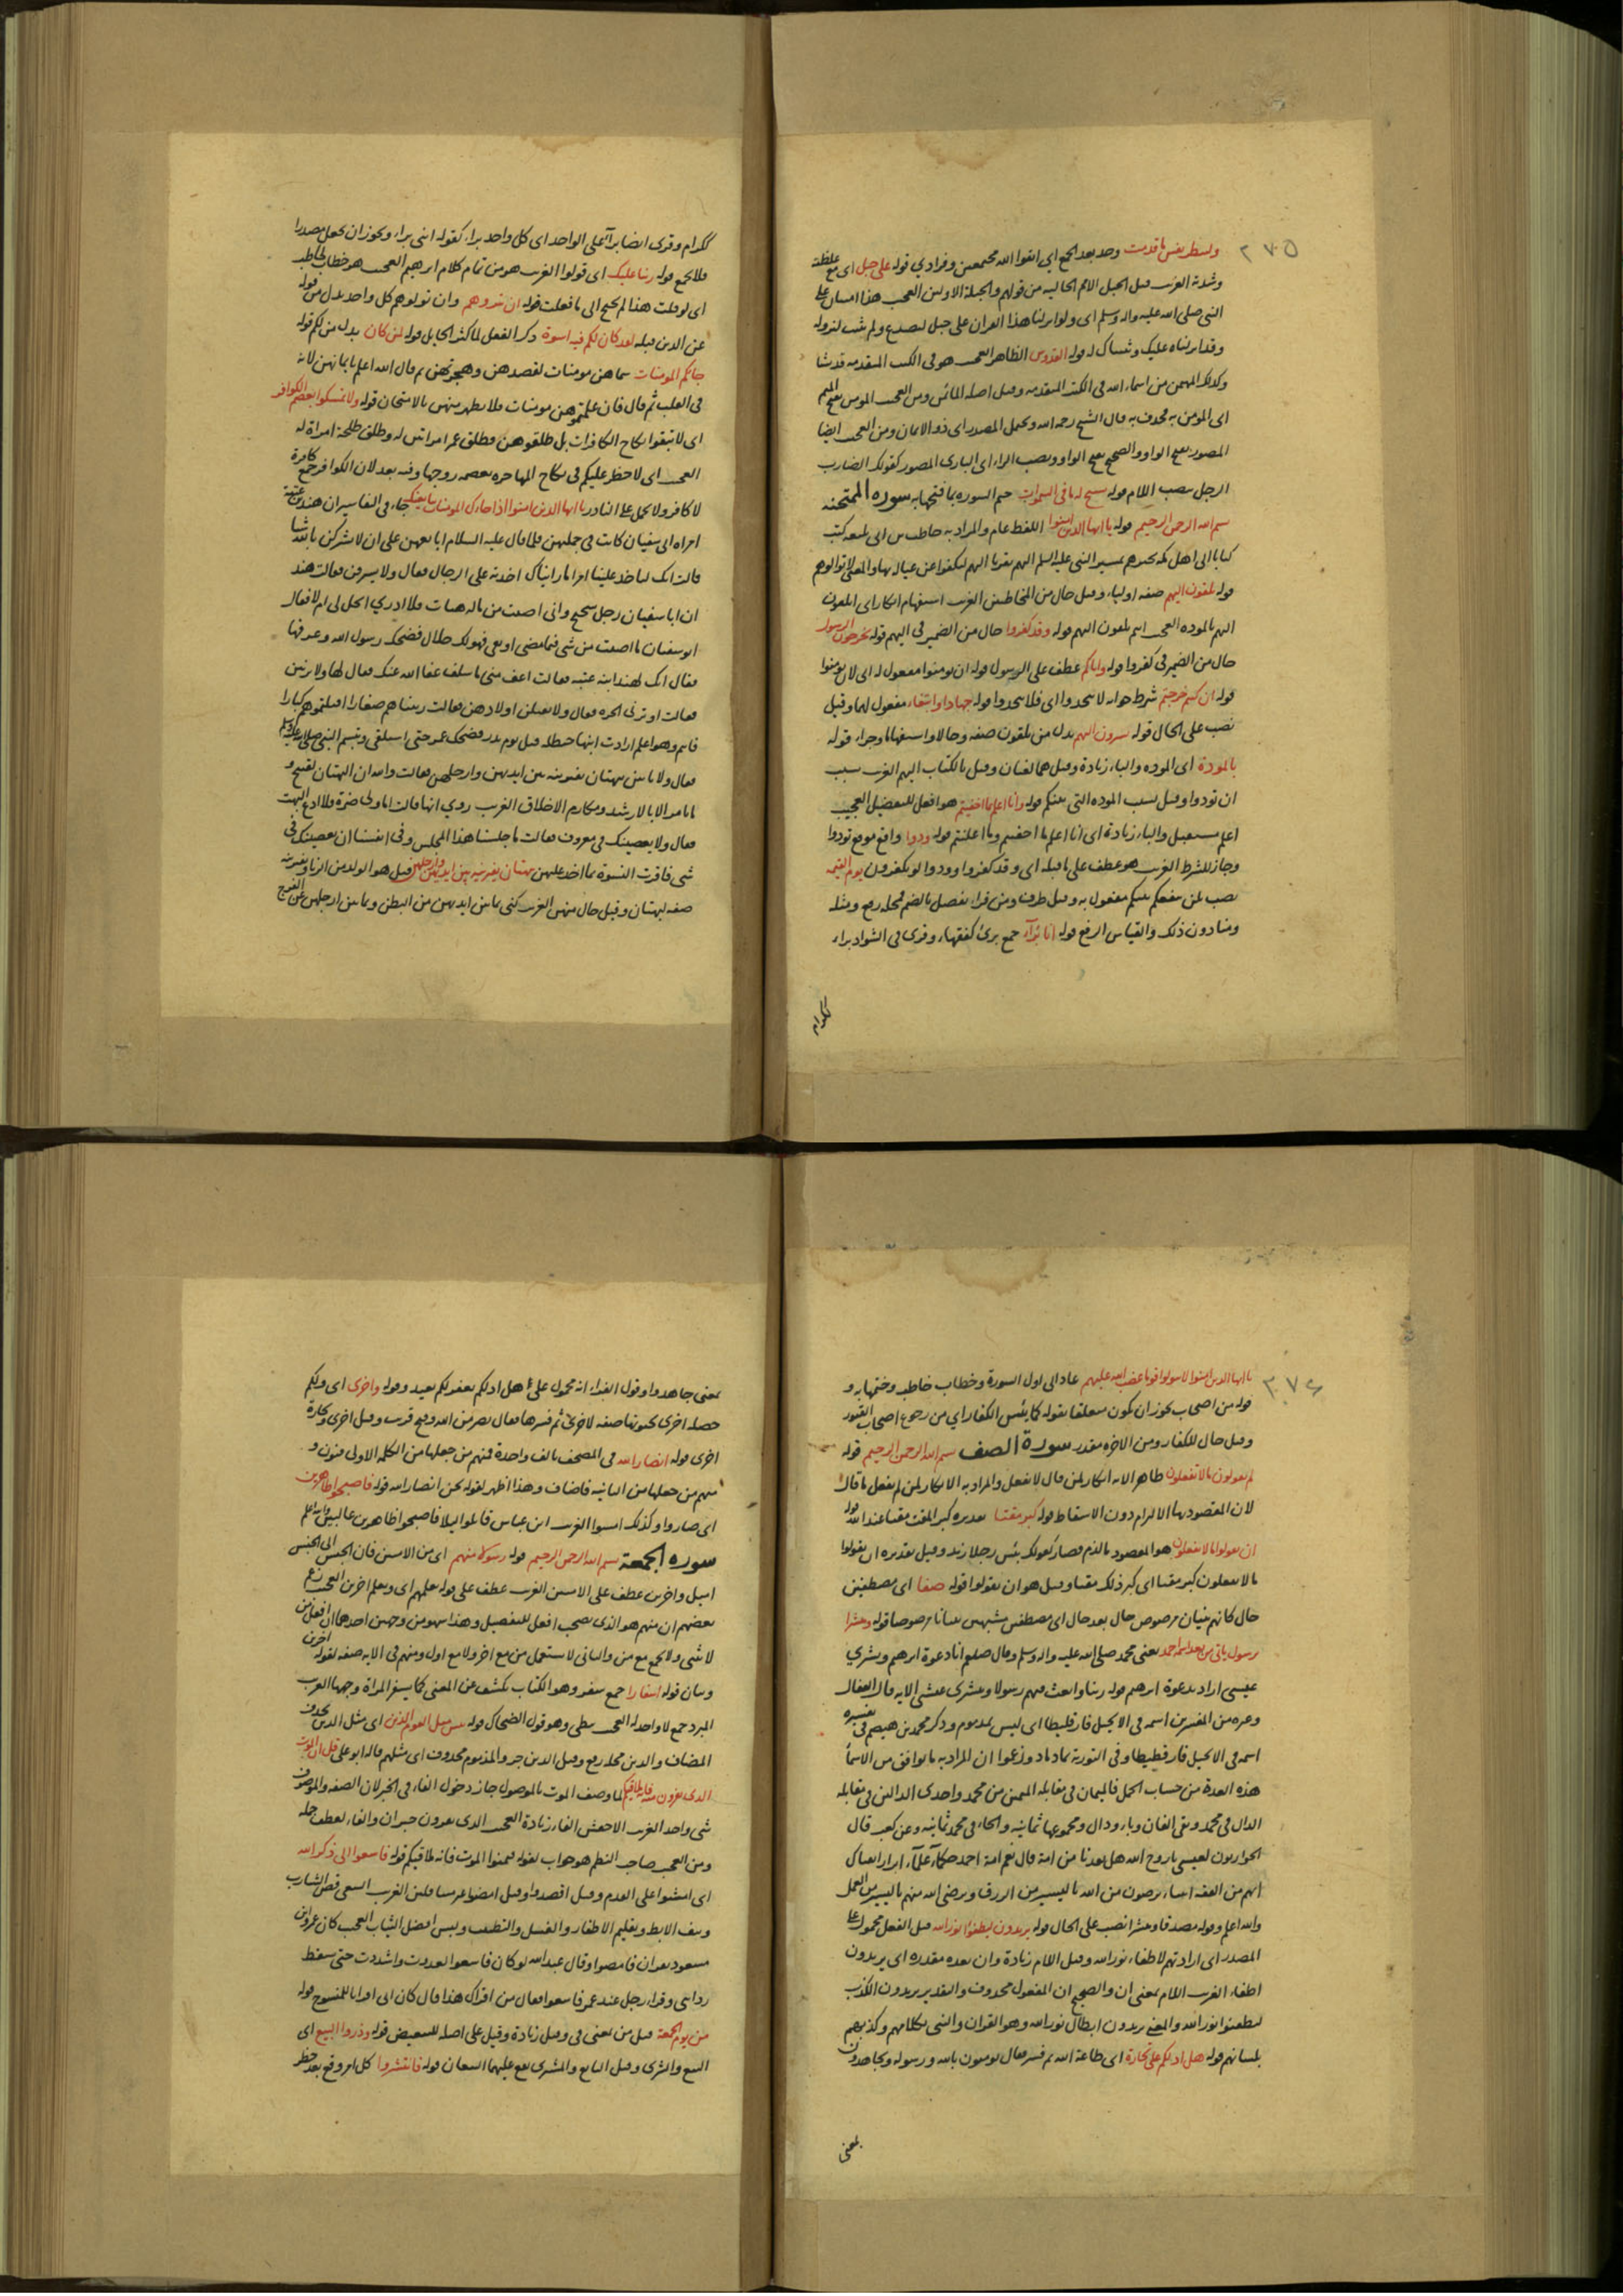 ٢٧٥
ولتنظر نفس ما قدمت وحد بعد الجمع اي اتقوا الله مجتمعين وفرادي قوله على جبل اي مع غلظته
وشدته الغريب قيل الجبل الامم الخاليه من قولهم والجبلة الاولين العجيب هذا امتنان على
النبي صلى الله عليه واله وسلم اي ولو انزلنا هذا القران على جبل لتصدع ولم يثبت لنزوله
وقد انزلناه عليك وثبتناك له قوله القدوس الطاهر العجيب هو في الكتب المتقدمه قدشا
وكذلك المهيمن من اسماء الله في الكتب المتقدمه وقيل اصله المائمن ومن العجيب المومن بفتح الميم
اي المؤمن به فحذف به قال الشيخ رحمه الله ويحتمل المصدر اي ذو الايمان ومن العجيب ايضا
المصور بفتح الواو والصحيح بفتح الواو ونصب الراء اي البارى المصور كقولك الضارب
الرجل بنصب اللام قوله يسبح له ما في السموات ختم السوره بما افتتحها به سوره الممتحنه
بسم الله الرحمن الرحيم قوله يا ايها الذين امنوا اللفظ عام والمراد به حاطب بن ابى بلتعه كتب
كتابا الى اهل مكه يخبرهم بمسير النبي عليه السلم اليهم تقربا اليهم ليكفوا عن عياله بها والمعنى لا توالوهم
قوله تلقون اليهم صفه اولياء وقيل حال من المخاطبين الغريب استفهام انكار اى اتلقون
اليهم بالموده العجيب انتم تلقون اليهم قوله وقد كفروا حال من الضمير في اليهم قوله يخرجون الرسول
حال من الضمير في كفروا قوله واياكم عطف على الرسول قوله ان تومنوا مفعول له اى لان تومنوا
قوله ان كنتم خرجتم شرط جوابه لا تتخذوا اى فلا تتخذوا قوله جهادا وابتغاء مفعول لهما وقيل
نصب على الحال قوله تسرون اليهم بدل من تلقون صفه وحالا واستفهاما وجزاء قوله
بالمودة اى الموده والباء زيادة وقيل هما لغتان وقيل بالكتاب اليهم الغريب بسبب
ان تودوا وقيل بسبب الموده التى بينكم قوله وانا اعلم بما اخفيتم هو افعل للتفضيل العجيب
اعلم مستقبل والباء زيادة اى انا اعلم ما اخفيتم وما اعلنتم قوله وودوا واقع موقع تودوا
وجاز للشرط الغريب هو عطف على ما قبله اى وقد كفروا وودوا لو تكفرون يوم القيمه
نصب بلن تنفعكم بينكم مفعول به وقيل ظرف ومن قراء يفصل بالضم فمحله رفع ومثله
ومنا دون ذلك والقياس الرفع قوله انا برآء جمع برئ كفقهاء وقرى فى الشواذ براء
ككرام
ككرام وقرى ايضا برآء على الواحد اى كل واحد براء كقوله اننى براء ويجوز ان يجعل مصدرا
فلا يجمع قوله ربنا عليك اى قولوا الغريب هو من تمام كلام ابرهيم العجيب هو خطاب لحاطب
اى لو قلت هذا لم تحتج الى ما فعلت قوله ان تبروهم وان تولوهم كل واحد بدل من قوله
عن الذين قبله لقد كان لكم فيهم اسوة ذكر الفعل لما كثر الحايل قوله لمن كان بدل من لكم قوله
جاءكم المومنات سماهن مومنات لقصدهن وهجرتهن ثم قال الله اعلم بايمانهن لانه
فى القلب ثم قال فان علمتموهن مومنات فلا يظهر منهن بالامتحان قوله ولا تمسكوا بعصم الكوافر
اى لا تبقوا نكاح الكافرات بل طلقوهن فطلق عمر امراتين له وطلق طلحة امراة له
العجيب اى لا حظر عليكم فى نكاح المهاجره بعصمه زوجها وفيه بعد لان الكوافر جمع كافرة
لا كافر ولا يحمل على النادر يا ايها النبي اذا جاءك المومنات يبايعنك جاء فى التفاسير ان هند بنت عتبة
امراة ابى سفيان كانت فى جملتهن فلما قال عليه السلام ابايعهن على ان لا يشركن بالله شيئا
قالت انك لتاخذ علينا امرا ما رايناك اخذته على الرجال فقال ولا يسرقن فقالت هند
ان ابا سفيان رجل شحيح وانى اصبت من ماله هنات فلا ادري ايحل لى ام لا فقال
ابو سفيان ما اصبت من شى فيما مضى او بقى فهو لك حلال فضحك رسول الله وعرفها
فقال انك لهند ابنه عتبه فقالت اعف عنى ما سلف عفا الله عنك فقال لها ولا يزنين
فقالت او تزنى الحره فقال ولا يقتلن اولادهن فقالت ربيناهم صغارا افقتلتموهم كبارا
فانتم وهم اعلم ارادت ابنها حنظله قتل يوم بدر فضحك عمر حتى استلقى وتبسم النبي صلى الله عليه وسلم
فقال ولا ياتين ببهتان يفترينه بين ايديهن وارجلهن فقالت والله ان البهتان لقبيح و
ما تامر الا بالارشد ومكارم الاخلاق الغريب روي انها قالت انا ولى ضرة فلا ادع البهت
فقال ولا يعصينك فى معروف فقالت ما جلسنا هذا المجلس وفى انفسنا ان نعصينك فى
شى فاقرت النسوة بما اخذ عليهن ببهتان يفترينه بين ايديهن وارجلهن قيل هو الولد من الزنا ويفترينه
صفه لبهتان وقيل حال منهن الغريب كنى بما بين ايديهن من البطن وبما بين ارجلهن عن الفرج
٢٧٦
يا ايها الذين امنوا لا تتولوا قوما غضب الله عليهم عاد الى اول السورة وخطاب حاطب وختمها به و
قوله من اصحاب يجوز ان يكون متعلقا بقوله كما يئس الكفار اي من رجوع اصحاب القبور
وقيل حال للكفار ومن الاخره مقدر سورة الصف بسم الله الرحمن الرحيم قوله
لم تقولون ما لا تفعلون ظاهر الايه انكار لمن قال لا يفعل والمراد به الانكار لمن لم يفعل ما قال
لان المقصود بها الالزام دون الاسقاط قوله كبر مقتا تقديره كبر المقت مقتا عند الله قوله
ان تقولوا ما لا تفعلون هو المقصود بالذم فصار كقولك بئس رجلا زيد وقيل تقديره ان تقولوا
ما لا تفعلون كبر مقتا اى كبر ذلك مقتا وقيل هو ان تقولوا قوله صفا اى مصطفين
حال كانهم بنيان مرصوص حال بعد حال اى مصطفين مشبهين بنيانا مرصوصا قوله ومبشرا
برسول ياتى من بعدى اسمه احمد يعنى محمد صلى الله عليه واله وسلم وقال صلعم انا دعوة ابرهيم وبشري
عيسى اراد بدعوة ابرهيم قوله ربنا وابعث فيهم رسولا وبشرى عيسى الايه قال القفال
وغيره من المفسرين اسمه فى الانجيل فارقليطا اى ليس بمذموم وذكر محمد بن هيصم فى تفسيره
اسمه فى الانجيل فارقليطا وفى التورية بماد ماد وزعموا ان المراد به ما يوافق من الاسماء
هذه العدة من حساب الجمل فالميمان فى مقابله الميمين من محمد واحدى الدالين فى مقابله
الدال فى محمد وبقى الفان وباء ودال ومجموعها ثمانيه والحاء فى محمد ثمانيه وعن كعب قال
الحواريون لعيسى يا روح الله هل بعدنا من امة قال نعم امة احمد حكماء علماء ابرار اتقياء كا
انهم من الفقه انبياء يرضون من الله باليسير من الرزق ويرضى الله منهم باليسير من العمل
والله اعلم وقوله مصدقا ومبشرا نصب على الحال قوله يريدون ليطفئوا نور الله قيل الفعل محمول على
المصدر اى ارادتهم لاطفاء نور الله وقيل اللام زيادة وان بعده مقدره اى يريدون
اطفاء الغريب اللام بمعنى ان والصحيح ان المفعول محذوف والتقدير يريدون الكذب
ليطفئوا نور الله والمعنى يريدون ابطال نور الله وهو القران والنبى بكلامهم وكذبهم
بلسانهم قوله هل ادلكم على تجارة اى طاعة الله ثم فسر فقال تومنون بالله ورسوله وتجاهدون
بمعنى
بمعنى جاهدوا وقول الفراء انه محمول على هل ادلكم يغفر لكم بعيد وقوله واخرى اى ولكم
خصله اخرى تحبونها صفه لاخرى ثم فسرها فقال نصر من الله وفتح قريب وقيل اخرى وتجارة
اخرى قوله انصار الله فى المصحف بالف واحدة فمنهم من جعلها من الكلمه الاولى فنون و
منهم من جعلها من الثانيه فاضاف وهذا اظهر لقوله نحن انصار الله قوله فاصبحوا ظاهرين
اى صاروا وكذلك امسوا الغريب ابن عباس قاتلوا ليلا فاصبحوا ظاهرين غالبين والله اعلم
سوره الجمعة بسم الله الرحمن الرحيم قوله رسولا منهم اى من الاميين فان الجنس الى الجنس
اميل واخرين عطف على الاميين الغريب عطف على قوله يعلمهم اى ويعلم اخرين العجيب زعم
بعضهم ان منهم هو الذى يصحب افعل للتفضيل وهذا سهو من وجهين احدهما ان افعل من
لا يثنى ولا يجمع مع من والثانى لا يستعمل من مع اخر ولا مع اول ومنهم فى الايه صفه لقوله اخرين
وبيان قوله اسفارا جمع سفر وهو الكتاب يكشف عن المعنى كما يسفر المراة وجهها الغريب
المبرد جمع لا واحد له العجيب نبطى وهو قول الضحاك قوله بئس مثل القوم الذين اى مثل الذين بحذف
المضاف والذين محله رفع وقيل الذين جر والمذموم محذوف اى مثلهم قاله ابو على قل ان الموت
الذى تفرون منه فانه ملاقيكم لما وصف الموت بالموصول جاز دخول الفاء فى الخبر لان الصفه والموصوف
شى واحد الغريب الاخفش الفاء زيادة العجيب الذى تفرون خبر ان والفاء لعطف جمله
ومن العجيب صاحب النظم هو جواب لقوله فتمنوا الموت فانه ملاقيكم قوله فاسعوا الى ذكر الله
اى امشوا على القدم وقيل اقصدوا وقيل امضوا غير متثاقلين الغريب السعى قص الشارب
ونتف الابط وتقليم الاظفار والغسل والتطيب ولبس افضل الثياب العجيب كان عمر وابن
مسعود يقران فامضوا وقال عبد الله لو كان فاسعوا لعدوت واشتددت حتى سقط
ردائى وقراء رجل عند عمر فاسعوا فقال من اقراك هذا قال كان ابى اقرانا للمنسوخ قوله
من يوم الجمعة قيل من بمعنى فى وقيل زيادة وقيل على اصله للتبعيض قوله وذروا البيع اى
البيع والشرى وقيل البايع والمشترى يقع عليهما البيعان قوله فانتشروا كل امر وقع بعد حظر